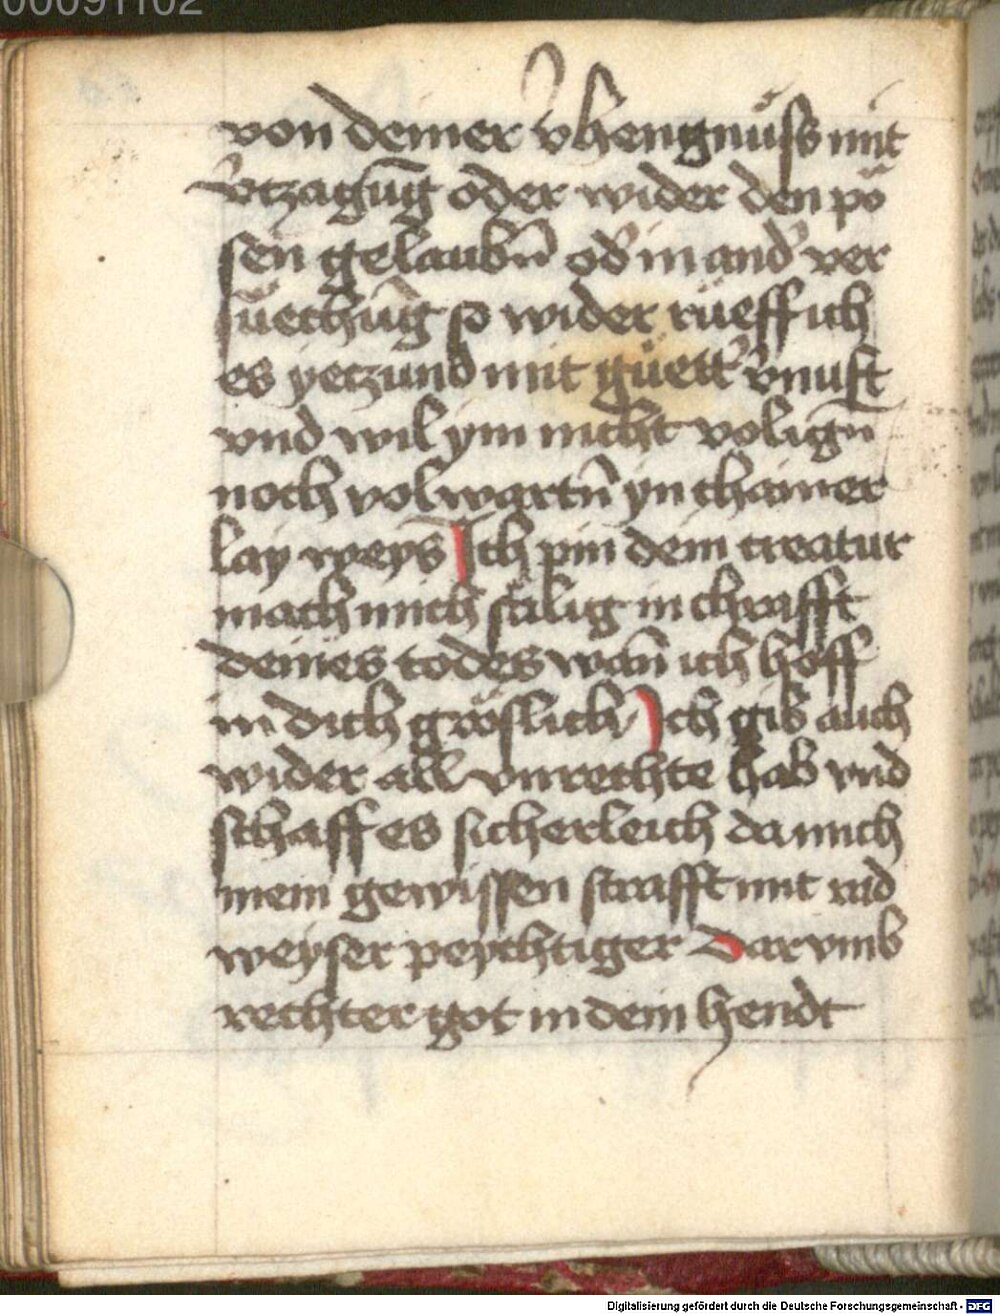 00091102
von deiner vhengnüss mit
vtzagūg oder wider den pö
sen gelaubn̄ od' in and' ver
suechūg so wider rüeff ich
es yeczund mit güett' v̄nuft
vnd wil ym nicht volign̄
noch volwartn̄ yn chainer
lay weys Ich pin dein creatur
mach mich sälig in chrafft
deines todes wan̄ ich hoff
in dich gröslich Ich gib auch
wider all vnrechte hab vnd
schaff es sicherleich da mich
mein gewissen strafft mit rad
weyser peychtiger Darvmb
rechter got in dein hendt
Digitalisierung gefördert durch die Deutsche Forschungsgemeinschaft - DFG